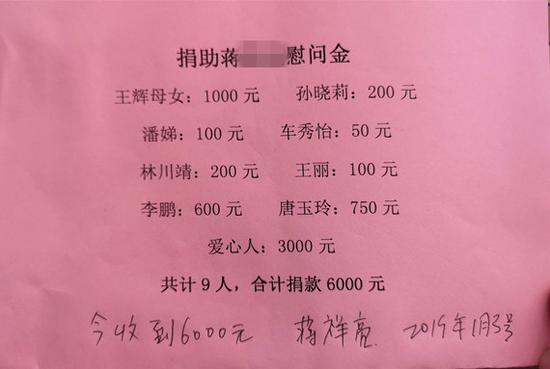 捐助蒋 慰问金
王辉母女：1000 元 孙晓莉：200 元
潘娣：100 元 车秀怡：50 元
林川靖：200 元 王丽：100 元
李鹏：600 元 唐玉玲：750 元
爱心人：3000 元
共计 9 人，合计捐款 6000 元
今收到6000元 蒋祥亮 2019年1月3号